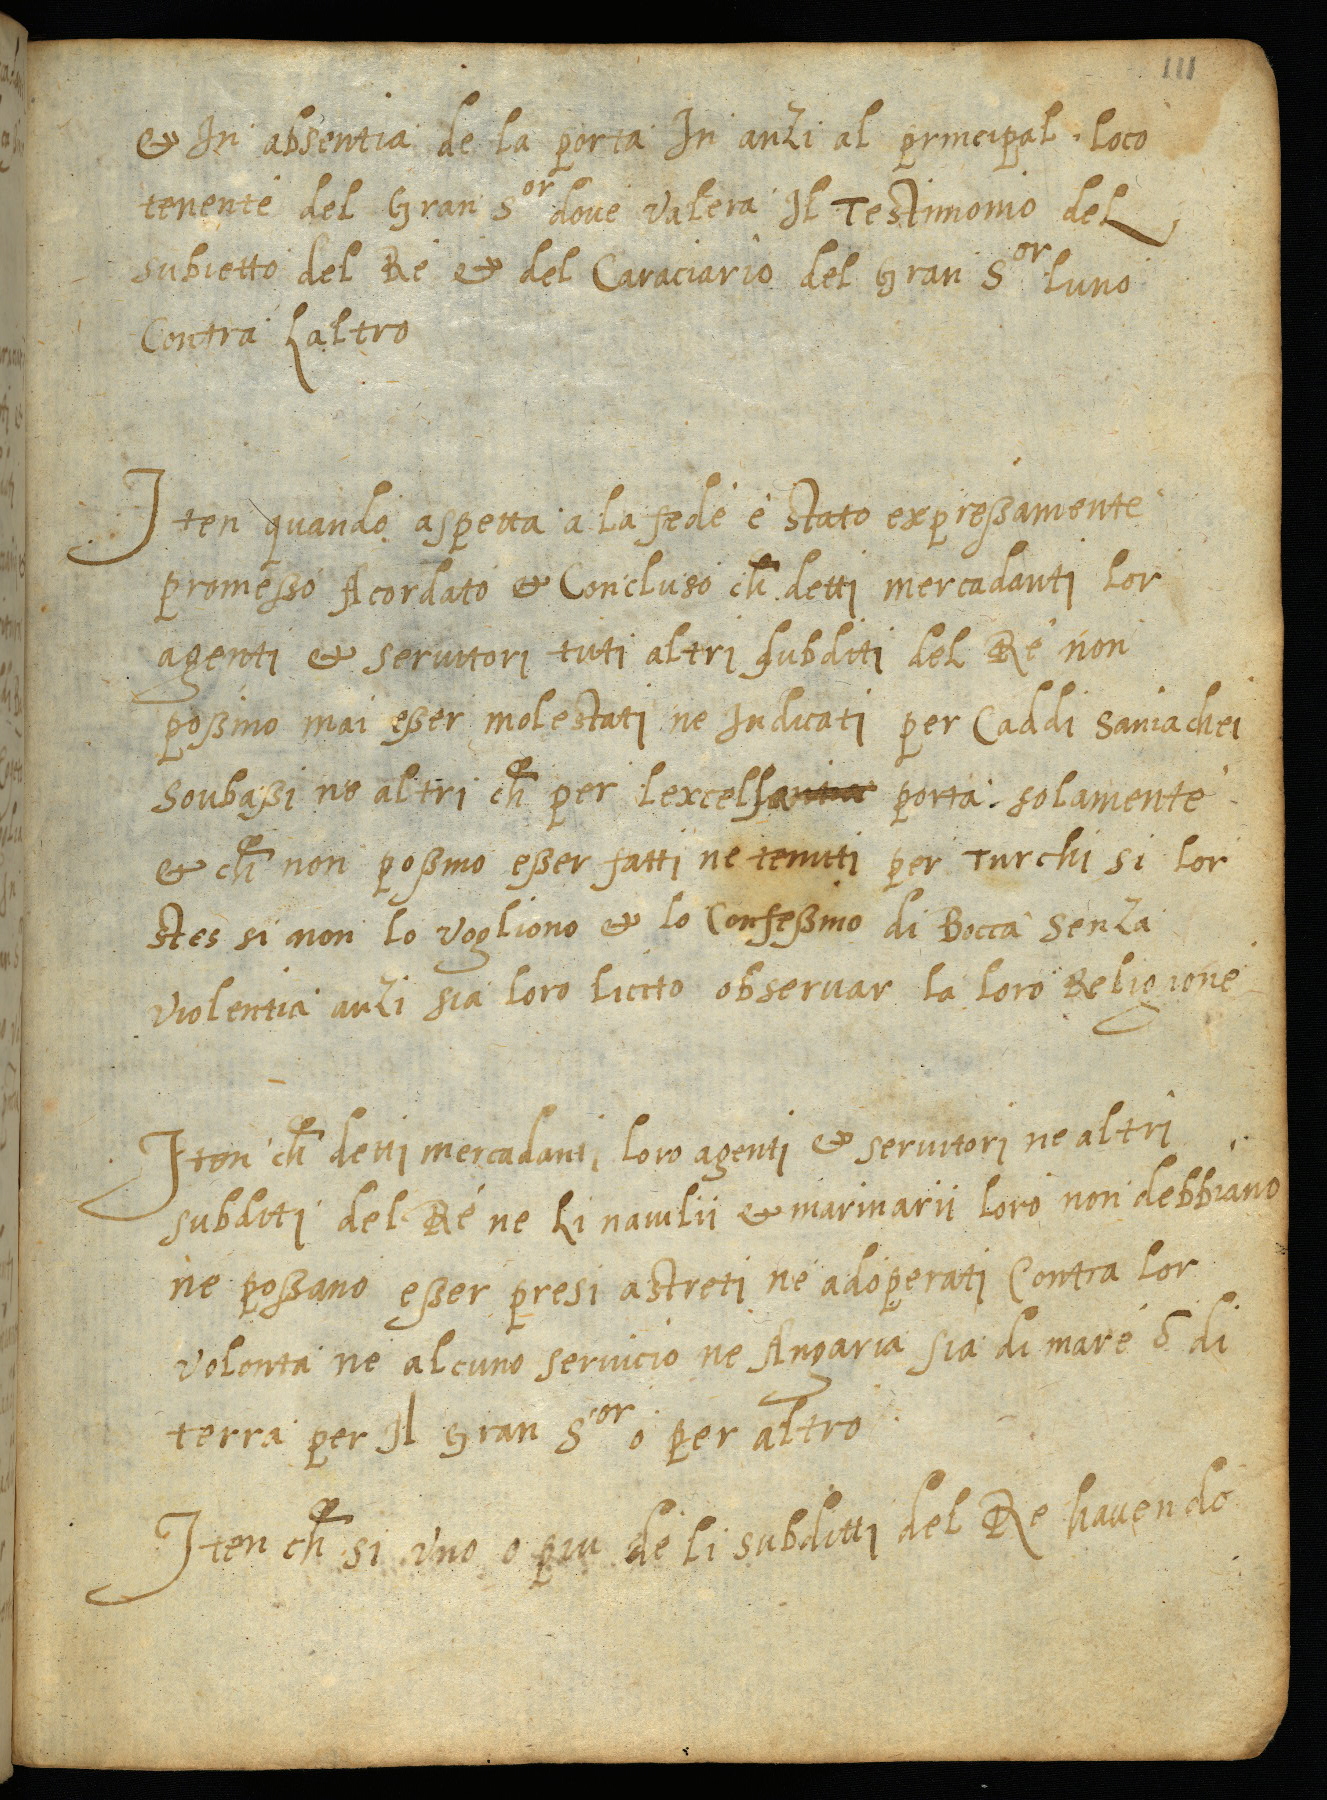 111
& In absentia de la porta In anzi al principal loco
tenente del Gran Sor doue valera Il Testimonio del
subietto del Re & del Caraciario del Gran Sor luno
Contra Laltro
Iten quando aspetta a la fede é stato expreßamente
promeßo Acordato & Concluso ch detti mercadanti lor
agenti & seruitori tuti altri subditi del Re non
poßino mai eßer molestati ne Indicati per Caddi Saniachei
Soubaßi ne altri ch per lexcelsa porta solamente
& ch non poßino eßer fatti ne tenuti per Turchi si lor
stes si non lo vogliono & lo Confeßino di Bocca Senza
violentia anzi sia loro licito obseruar la loro Religione
Iten ch detti mercadanti loro agenti & seruitori ne altri
subditi del Ré ne Li nauilii & marinarii loro non debbiano
ne poßano eßer presi astreti ne adoperati Contra lor
volonta ne alcuno seruicio ne Angaria sia di mare ó di
terra per Il Gran Sor o per altro
Iten ch si vno o piu de li subditti del Re hauendo